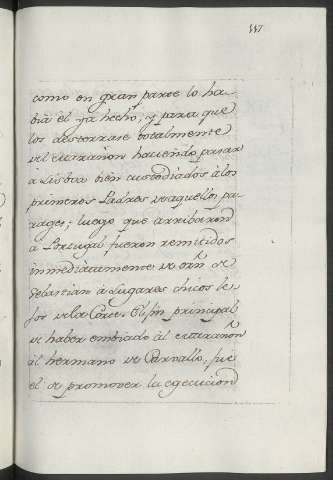 117
como en gran parte lo ha-
bia él ya hecho; y para que
los desterrase totalmente
del Marañon haciendo pasar
a Lisboa bien custodiados à los
primeros Padres de aquellos pa-
rages; luego que arribaron
a Portugal fueron remitidos
inmediatamente de orñ de
Sebastian à Lugares chicos le-
jos de la Corte. El fin principal
de haber embiado àl Marañon
àl hermano de Carvallo, fue
el de promover la egecucion